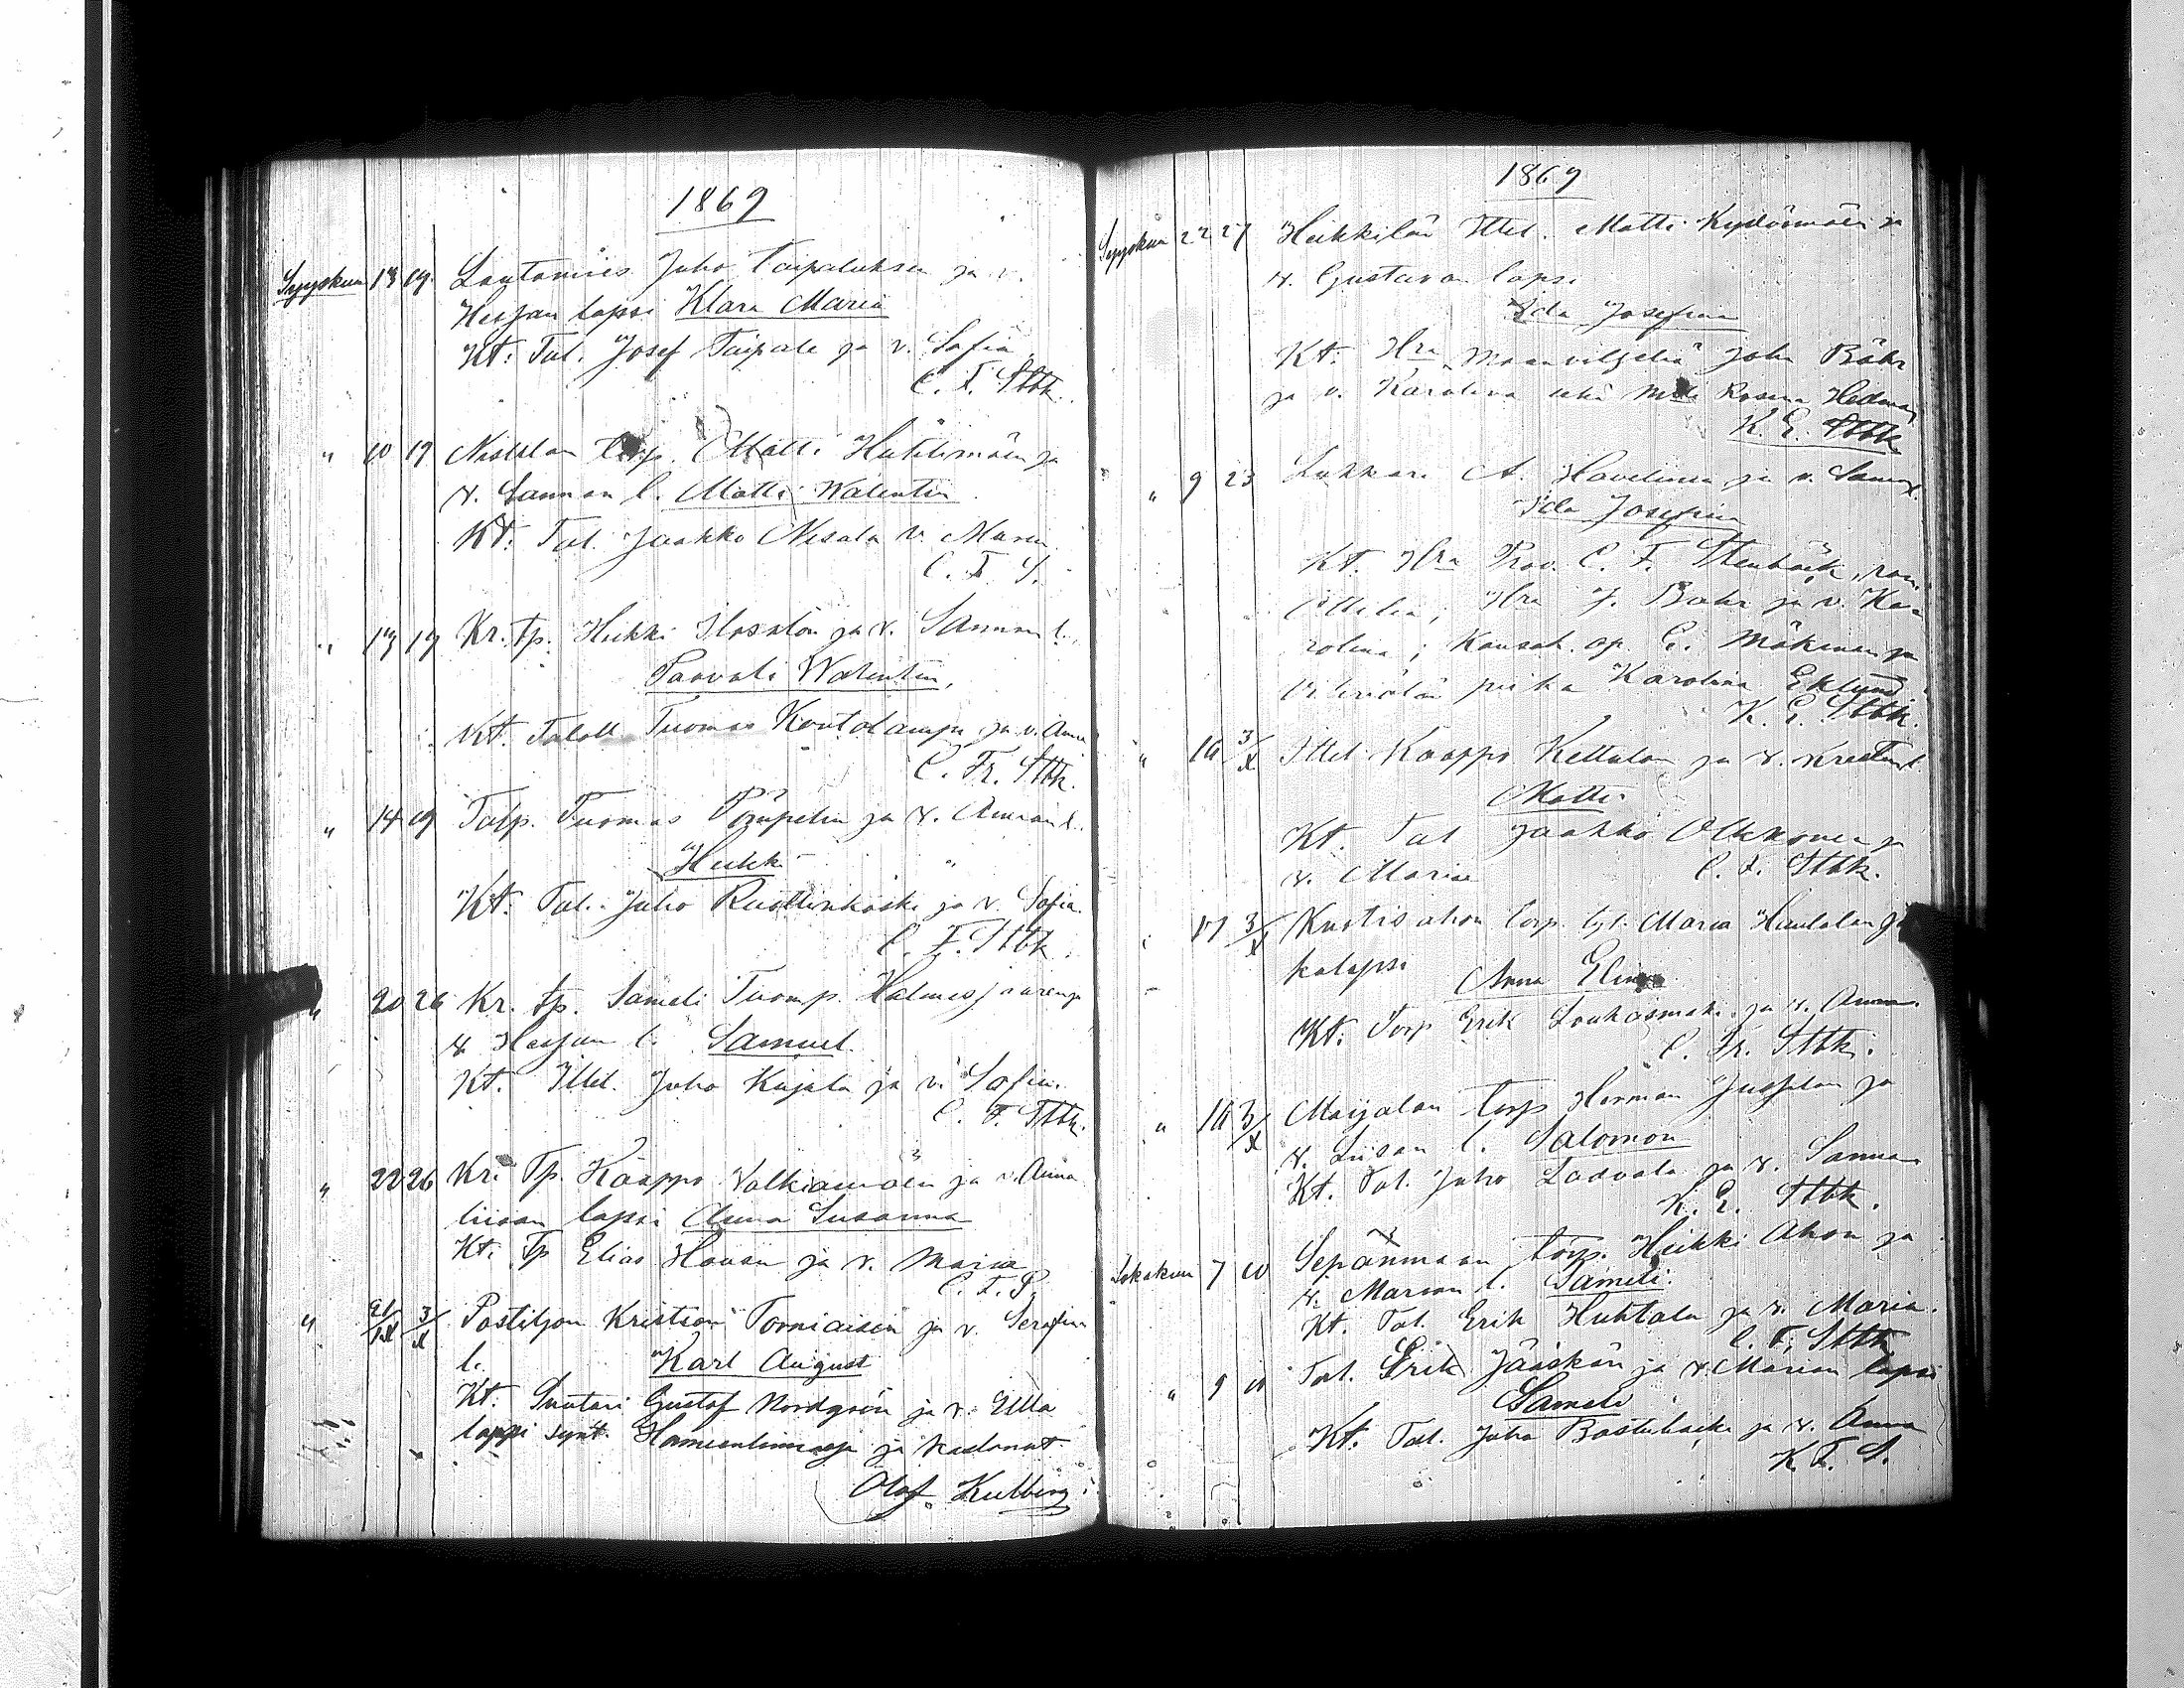 1869
Syyskuu 13 19. Lautamies Juho Taipaluksen ja v.
Hessan lapsi Klara Maria
Kt: Tal. Josef Taipale ja v. Sofia
C. F. Stbk.
" 10 19 torp. Matti Huhtimäen ja
v. Sannan l. Matti Walentin
Kt. Tal. Jaakko Nisula v. Maria
C. F. S.
" 13 19 Kr. tp. Heikki ja v. Sannan l.
Paavali Walentin,
Kt. Taloll. Tuomas Koutolampi ja v. Anna
C. Fr. Stbk.
" 14 19 Talp. Tuomas ja v. Annan l.
Heikki
Kt. Tal. Juho ja v. Sofia.
C. F. Stbk.
" 20 26 Kr. tp. Sameli Tuomp. ja
v. Hessan l. Samuel.
Kt. Ittel. Juho Kujala ja v. Sofia.
C. F. Stbk.
" 22 26 Kr. Tp. Kaappo Valkiamäen ja v. Anna
liisan lapsi Anna Susanna
Kt. Tp Elias ja v. Maria
C. F. S.
" 21/IX 3/X Postiljon Kristian Torniaisen ja v. Serafina
l. Karl August
Kt. Suutari Gustaf Nordgrén ja v. Ulla
lapsi synt. Hämeenlinnassa ja kastanut
Olof Kullberg
1869
Syyskuu 22 27 Heikkilän Ittel. Matti Kydönmäen ja
v. Gustavan lapsi
Ida Josefina
Kt. Hra Maanviljeliä John Bähr
ja v. Karolina sekä Mlle Rosina Hedman
K. E. Stbk
" 9 23 Lukkari A. Havelinen ja v. Sannan l.
Ida Josefina
Kt. Hra Prov. C. F. Stenbäck, rou.
Ottilia; Hra J. Bähr ja v. Ka-
rolina; Kansak. op. E. Mäkinen ja
piika Karolina Eklund
K. E. Stbk.
" 16 3/X Ittel. Kaappo Kettulan ja v. Kreetan l.
Matti
Kt. Tal Jaakko Olkkonen ja
v. Maria C. F. Stbk.
" 17 3/X torp. tyt. Maria Hautalan ja
kalapsi Anna Elina
Kt. Torp Erik Loukasmäki ja v. Anna.
C. Fr. Stbk.
" 16 3/X Maijalan torp Herman Jussilan ja
v. Liisan l. Salomon
Kt. Tal. Juho Ladvala ja v. Sanna
K. E. Stbk.
Lokakuu 7 10 Sepänmaan torp. Heikki Ahon ja
v. Marian l. Sameli.
Kt. Tal. Erik Huhtala ja v. Maria.
C. F. Stbk
" 9 10 Tal. Erik Jääskän ja v. Marian lapsi
Sameli
Kt. Tal. Juho Bastubacka ja v. Anna
K. F. S.